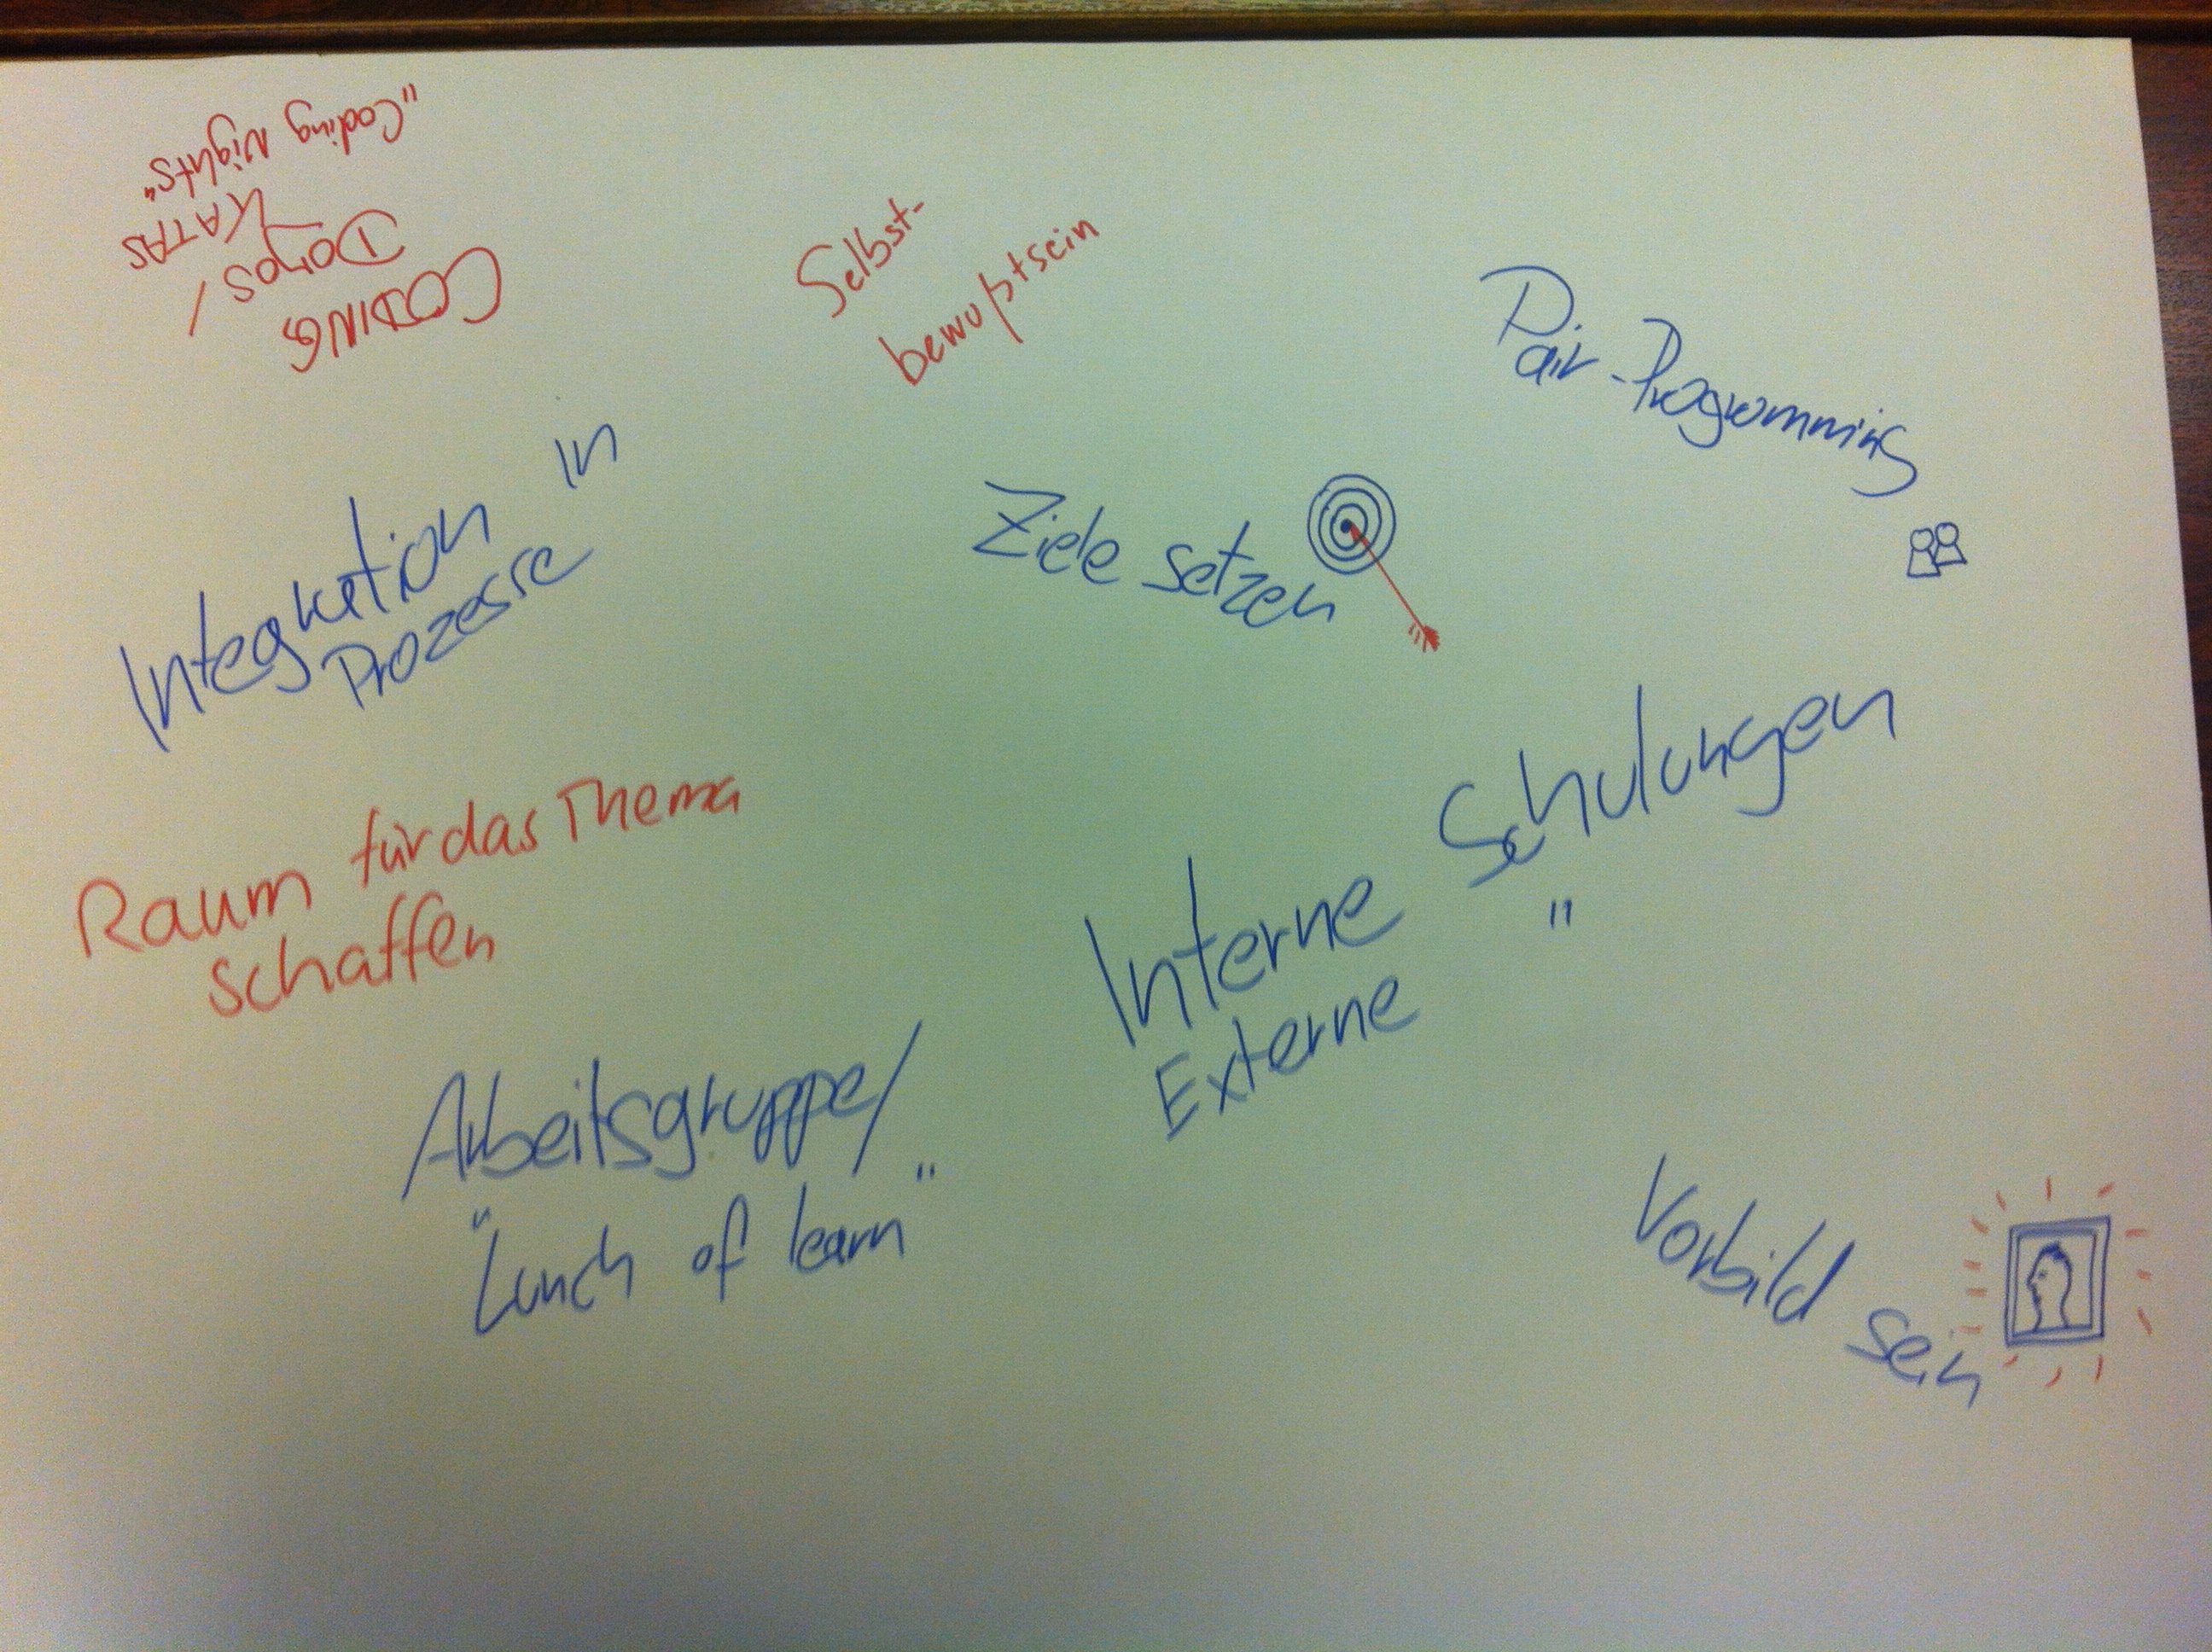 CODING
DOJOS /
KATAS
„Coding Nights“
Selbst-
bewußtsein
Pair-Programming
Integration in
Prozesse
Ziele setzen
Raum für das Thema
schaffen
Interne Schulungen
Externe "
Arbeitsgruppe/
"Lunch of learn"
Vorbild sein